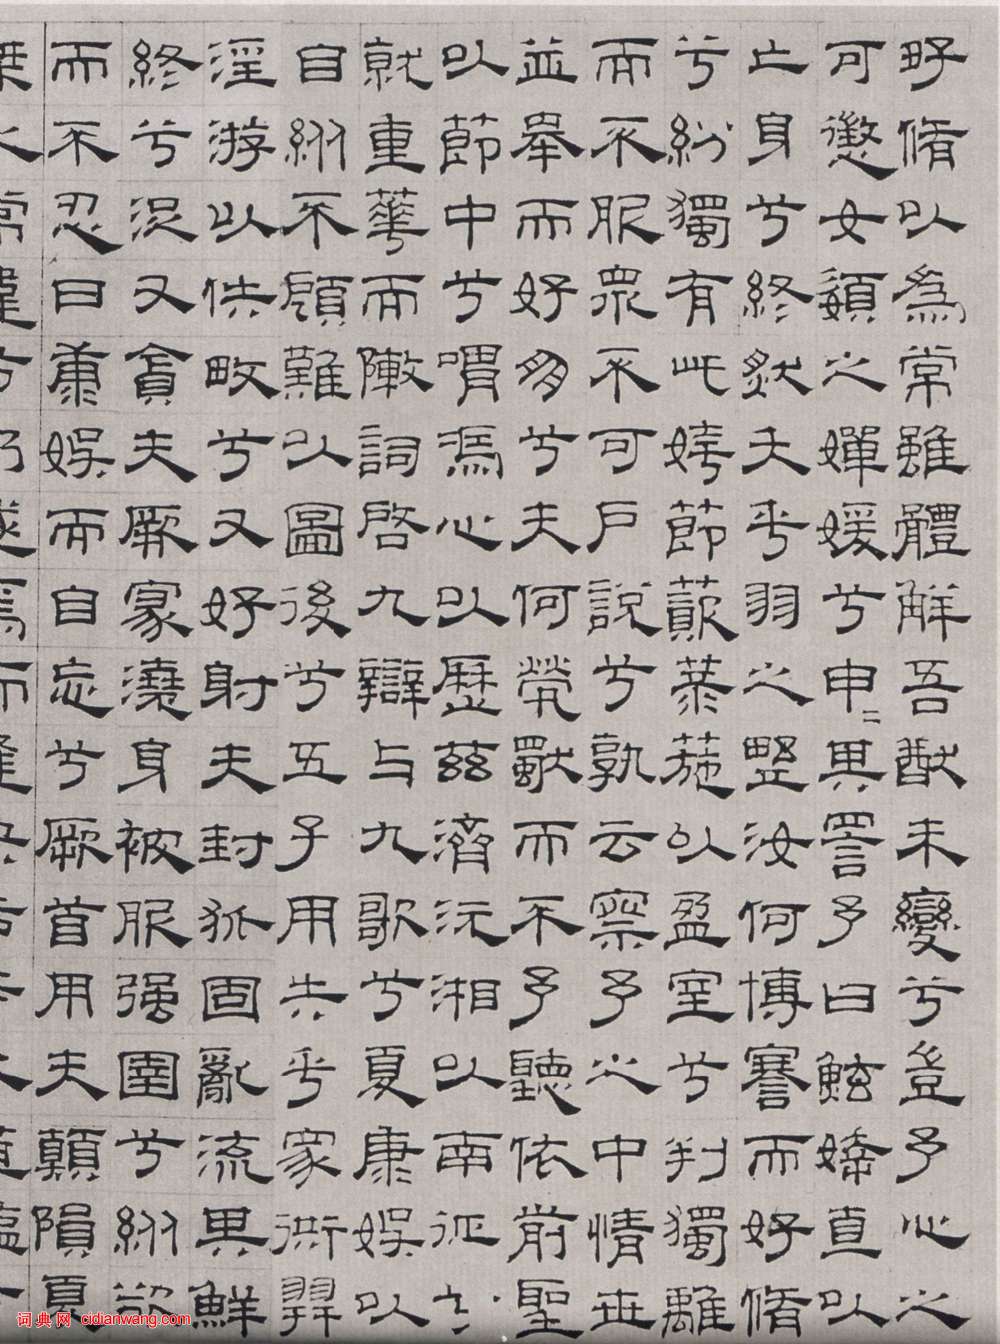 好脩以爲常雖體解吾猶未變兮豈予心之
可懲女嬃之嬋媛兮申二其詈予曰鮌婞直以
亡身兮終然夭乎羽之野汝何博謇而好脩
兮紛獨有此姱節薋菉葹以盈室兮判獨離
而不服衆不可戶說兮孰云察予之中情世
並舉而好朋兮夫何煢獨而不予聽依前聖
以節中兮喟馮心以歷茲濟沅湘以南征兮
就重華而敶詞啓九辯与九歌兮夏康娛以
自縱不顧難以圖後兮五子用失乎家衖羿
淫游以佚畋兮又好射夫封狐固亂流其鮮
終兮浞又貪夫厥家澆身被服强圉兮縱欲
而不忍日康娛而自忘兮厥首用夫顛隕夏
词典网 cidianwang.com